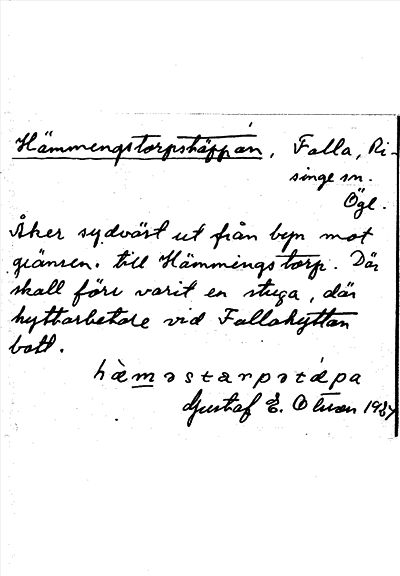 Hämmengstorpstäppan, Falla, Ri-
singe sn.
Ögl.
Åker sydväst ut från byn mot
gränsen. till Hämmingstorp. Där
skall förr varit en stuga, där
hyttarbetare vid Fallahyttan
bott.
hæ̀məstarpətápa
Gustaf E. Olsson 1937